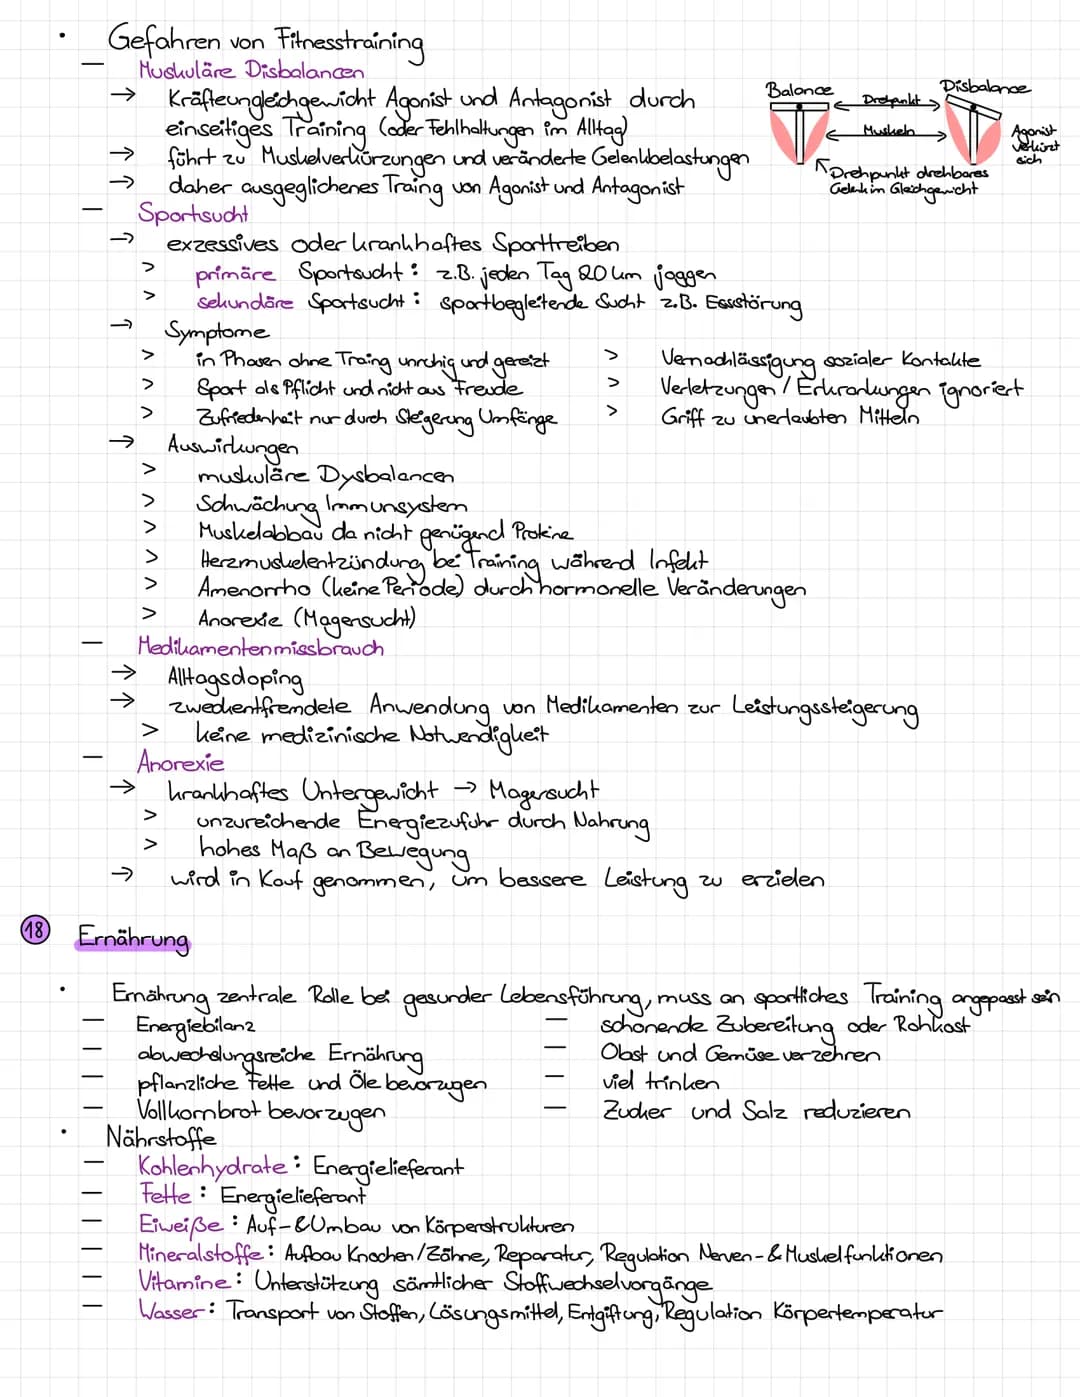 • Gefahren von Fitnesstraining
— Muskuläre Disbalancen
→ Kräfteungleichgewicht Agonist und Antagonist durch
einseitiges Training (oder Fehlhaltungen im Alltag)
→ führt zu Muskelverkürzungen und veränderte Gelenkbelastungen
→ daher ausgeglichenes Traing von Agonist und Antagonist
Balance
Disbalance
Drehpunkt
Muskeln
Agonist
verkürzt
sich
Drehpunkt drehbares
Gelenk im Gleichgewicht
— Sportsucht
→ exzessives oder krankhaftes Sporttreiben
> primäre Sportsucht: z.B. jeden Tag 20 km joggen
> sekundäre Sportsucht: sportbegleitende Sucht z.B. Essstörung
→ Symptome
> in Phasen ohne Traing unruhig und gereizt
> Sport als Pflicht und nicht aus Freude
> Zufriedenheit nur durch Steigerung Umfänge
> Vernachlässigung sozialer Kontakte
> Verletzungen / Erkrankungen ignoriert
> Griff zu unerlaubten Mitteln
→ Auswirkungen
> muskuläre Dysbalancen
> Schwächung Immunsystem
> Muskelabbau da nicht genügend Proteine
> Herzmuskelentzündung bei Training während Infekt
> Amenorrho (keine Periode) durch hormonelle Veränderungen
> Anorexie (Magersucht)
— Medikamentenmissbrauch
→ Alltagsdoping
→ zweckentfremdete Anwendung von Medikamenten zur Leistungssteigerung
> keine medizinische Notwendigkeit
— Anorexie
→ krankhaftes Untergewicht → Magersucht
> unzureichende Energiezufuhr durch Nahrung
> hohes Maß an Bewegung
→ wird in Kauf genommen, um bessere Leistung zu erzielen
18 Ernährung
• Ernährung zentrale Rolle bei gesunder Lebensführung, muss an sportliches Training angepasst sein
— Energiebilanz
— abwechslungsreiche Ernährung
— pflanzliche Fette und Öle bevorzugen
— Vollkornbrot bevorzugen
— schonende Zubereitung oder Rohkost
— Obst und Gemüse verzehren
— viel trinken
— Zucker und Salz reduzieren
• Nährstoffe
— Kohlenhydrate: Energielieferant
— Fette: Energielieferant
— Eiweiße: Auf-&Umbau von Körperstrukturen
— Mineralstoffe: Aufbau Knochen/Zähne, Reparatur, Regulation Nerven-& Muskelfunktionen
— Vitamine: Unterstützung sämtlicher Stoffwechselvorgänge
— Wasser: Transport von Stoffen, Lösungsmittel, Entgiftung, Regulation Körpertemperatur